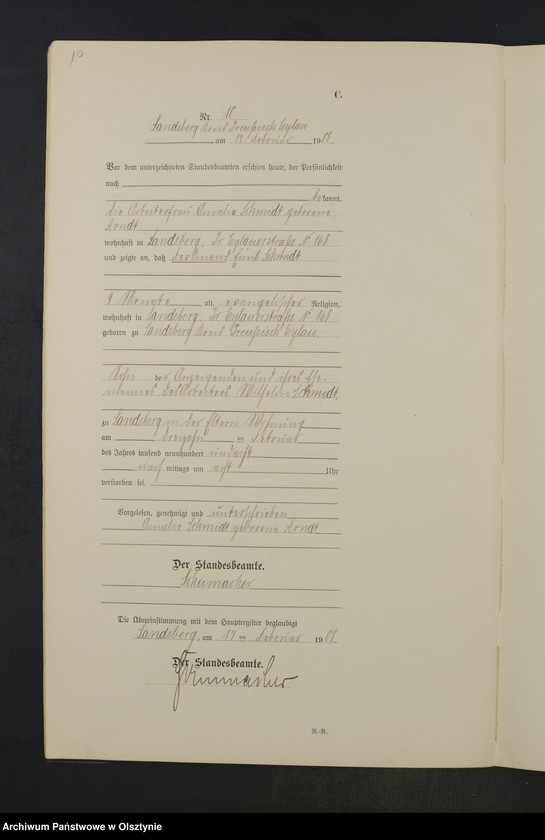 10
C.
Nr. 10
Landsberg Kreis Preußisch Eylau
, am 14 Februar 1908.
Vor dem unterzeichneten Standesbeamten erschien heute, der Persönlichkeit
nach
be kannt,
die Arbeiterfrau Amalie Schmidt geborene
Arndt
wohnhaft in Landsberg, Pr Eylauerstraße N 168
und zeigte an, daß Ferdinand Emil Schmidt
9 Monate alt, evangelischer Religion,
wohnhaft in Landsberg, Pr Eylauerstraße N 168
geboren zu Landsberg Kreis Preußisch Eylau
Sohn der Anzeigenden und ihres Ehe-
mannes des Arbeiters Schmidt,
zu Landsberg in der Eltern Wohnung
am ten Februar
des Jahres tausend neunhundert und acht
nach mittags um acht Uhr
verstorben sei
Vorgelesen, genehmigt und unterschrieben
Amalie Schmidt geborene Arndt
Der Standesbeamte.
Schumacher
Die Übereinstimmung mit dem Hauptregister beglaubigt
Landsberg, am 14 ten Februar 1908.
Der Standesbeamte.
Schumacher
N.-R.
Archiwum Państwowe w Olsztynie